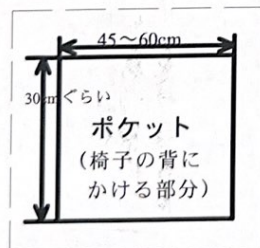 45～60cm
30cmぐらい
ポケット
（椅子の背に
かける部分）